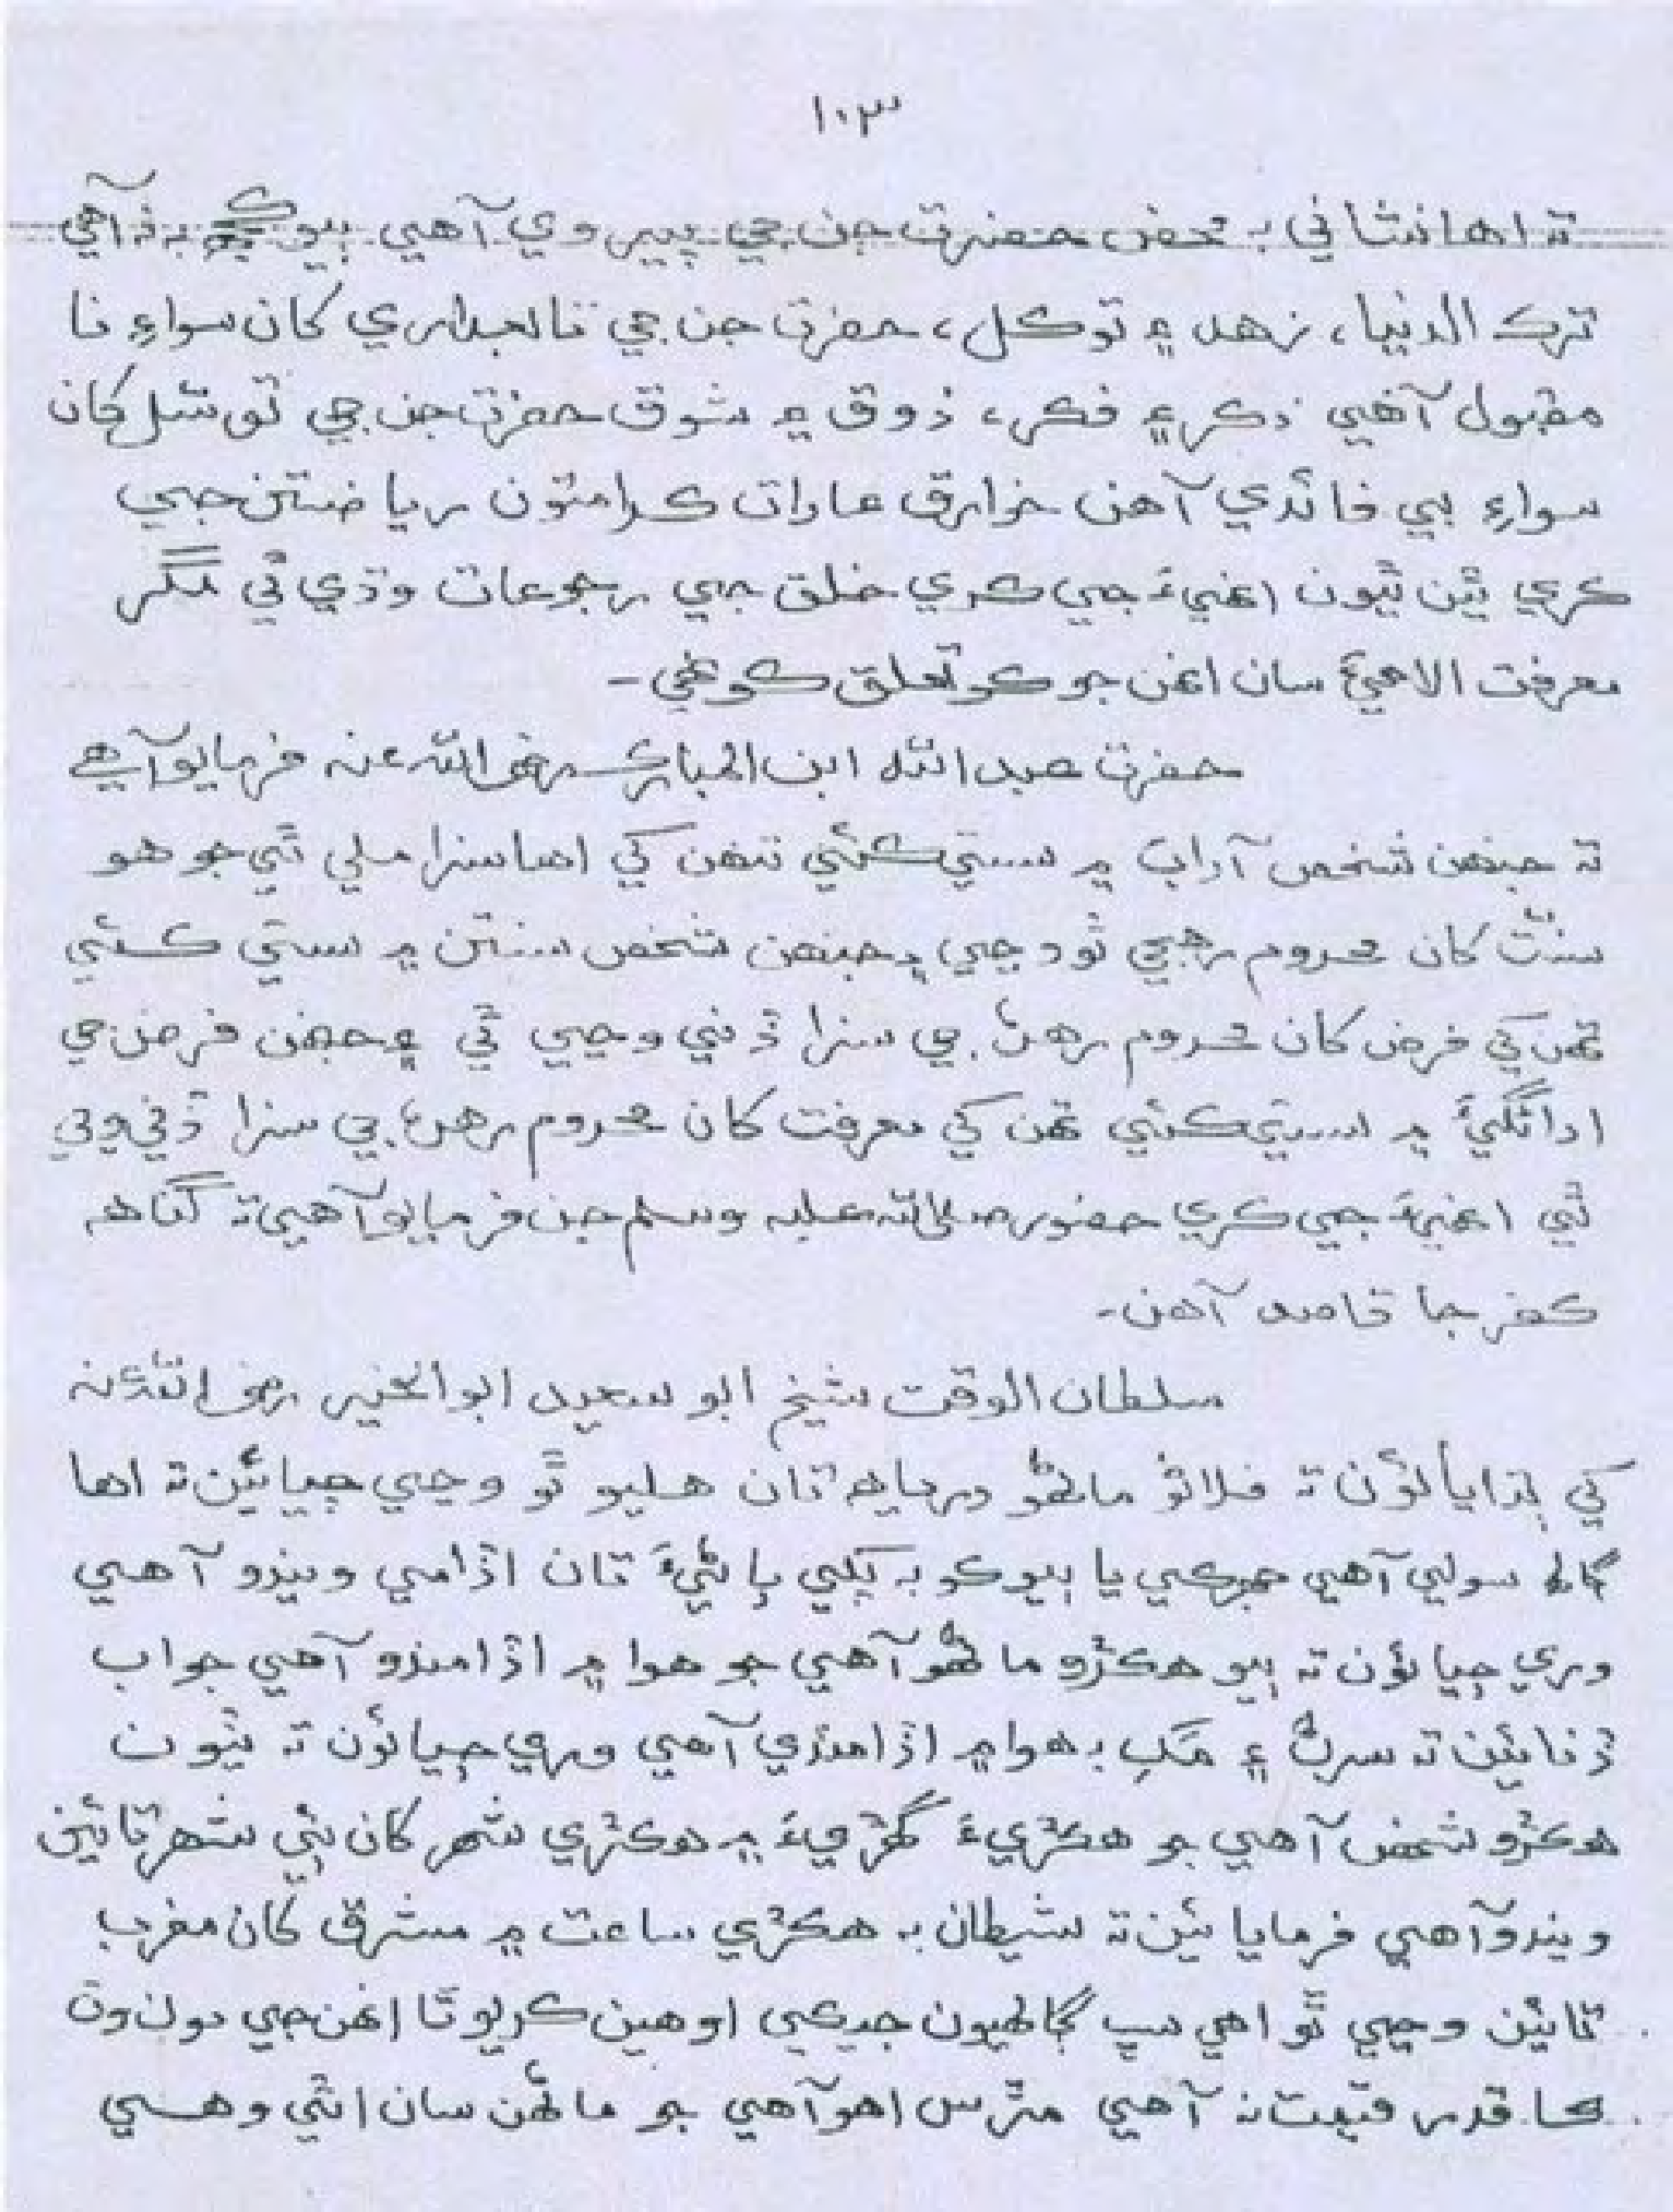 ١٠٣
ته اها نشاني به محض حضرت جن جي پيروي آهي ٻيو ڪجهه به نه آهي
ترڪ الدنيا، زهد ۽ توڪل، حضرت جن جي تابعداري کان سواءِ نا
مقبول آهي ذڪر ۽ فڪر، ذوق ۽ شوق حضرت جن جي توسل کان
سواءِ بي فائدي آهن خوارق عادات ڪرامتون رياضتن جي
ڪري ٿين ٿيون انهيءَ جي ڪري خلق جي رجوعات وڌي ٿي مگر
معرفت الاهيءَ سان انهن جو ڪو تعلق ڪونهي -
حضرت عبدالله ابن المبارڪ رضى الله عنه فرمايو آهي
ته جنهن شخص آداب ۾ سستي ڪئي تنهن کي اها سزا ملي ٿي جو هو
سنت کان محروم رهجي ٿو وڃي ۽ جنهن شخص سنتن ۾ سستي ڪئي
تنهن کي فرض کان محروم رهڻ جي سزا ڏني وڃي ٿي ۽ جنهن فرض جي
ادائگيءَ ۾ سستي ڪئي تنهن کي معرفت کان محروم رهڻ جي سزا ڏني ويئي
ٿي انهيءَ جي ڪري حضور صلى الله عليه وسلم جن فرمايو آهي ته گناهه
ڪفر جا قاصد آهن -
سلطان الوقت شيخ ابو سعيد ابوالخير رضى الله عنه
کي ٻڌايائون ته فلاڻو ماڻهو درياهه تان هليو ٿو وڃي چيائين ته اها
ڳالهه سولي آهي جهرڪي يا ٻيو ڪو به پکي پاڻيءَ تان اڏامي ويندو آهي
وري چيائون ته ٻيو هڪڙو ماڻهو آهي جو هوا ۾ اڏامندو آهي جواب
ڏنائين ته سرڻ ۽ مک به هوا ۾ اڏامندي آهي وري چيائون ته ٽيون
هڪڙو شخص آهي جو هڪڙيءَ گهڙيءَ ۾ هڪڙي شهر کان ٻئي شهر تائين
ويندو آهي فرمايائين ته شيطان به هڪڙي ساعت ۾ مشرق کان مغرب
تائين وڃي ٿو اهي سڀ ڳالهيون جيڪي اوهين ڪريو ٿا انهن جي مون وٽ
ڪا قدر قيمت نه آهي مڙس اهو آهي جو ماڻهن سان اٿي وهي